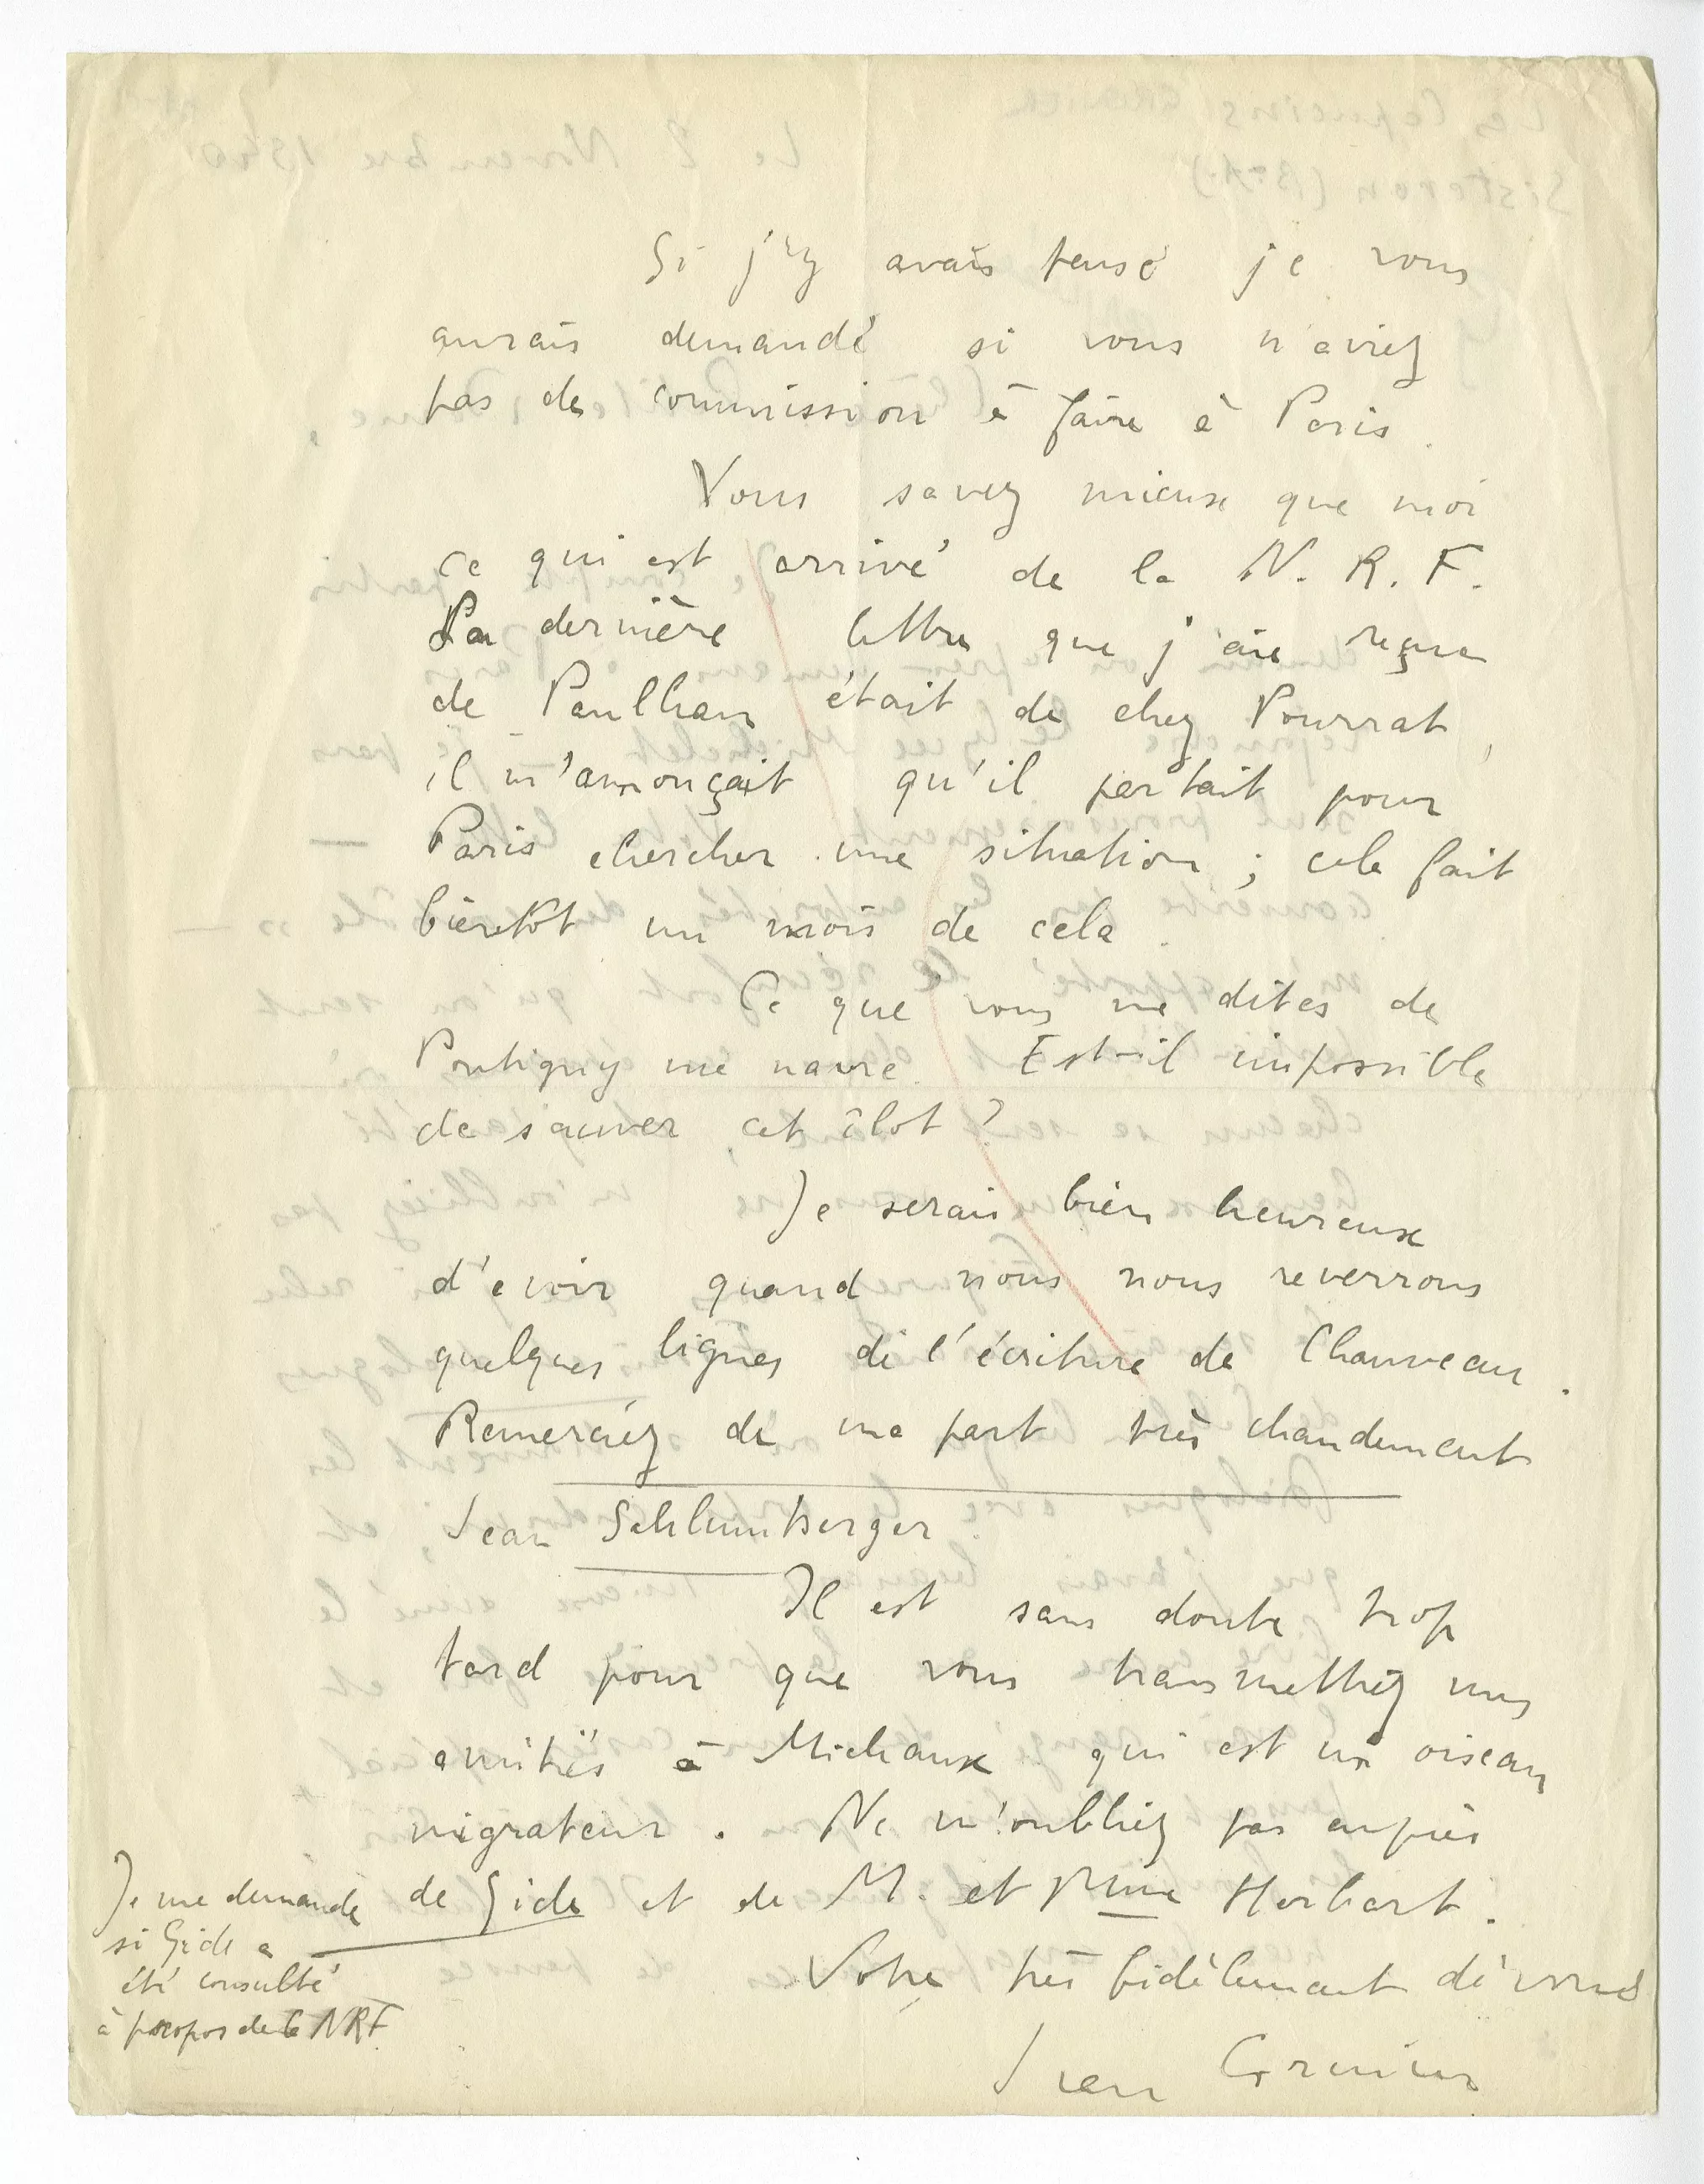 Si j'y avais pensé je vous
aurais demandé si vous n'aviez
pas de commission à faire à Paris.
Vous savez mieux que moi
ce qui est arrivé de la N. R. F.
La dernière lettre que j'aie reçue
de Paulhan était de chez Pourrat,
il m'annonçait qu'il partait pour
Paris chercher une situation ; cela fait
bientôt un mois de cela.
Ce que vous me dites de
Pontigny me navre. Est-il impossible
de sauver cet îlot ?
Je serais bien heureux
d'avoir quand nous nous reverrons
quelques lignes de l'écriture de Chauveau.
Remerciez de ma part très chaudement
Jean Schlumberger.
Il est sans doute trop
tard pour que vous transmettiez mes
amitiés à Michaux qui est un oiseau
migrateur. Ne m'oubliez pas auprès
de Gide et de M. et Mme Herbart.
Votre très fidèlement dévoué
Jean Grenier
Je me demande
si Gide a
été consulté
à propos de la NRF.